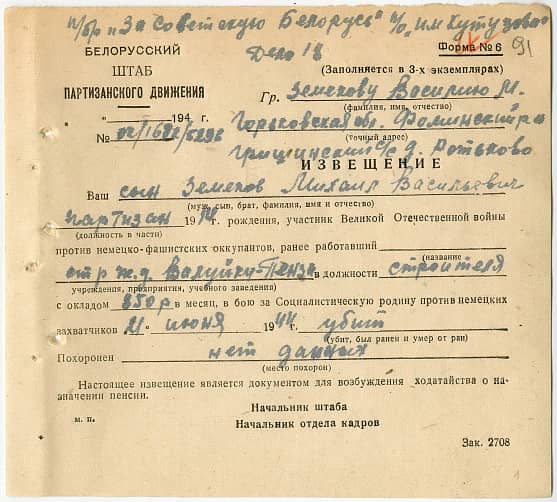 п/бр "За Советскую Белорусь" п/о "им Кутузова"
Дело 18
91
Форма № 6
БЕЛОРУССКИЙ
ШТАБ
ПАРТИЗАНСКОГО ДВИЖЕНИЯ
(Заполняется в 3-х экземплярах)
Гр. Земскову Василию М.
(фамилия, имя, отчество)
" " 194 г.
№
Горьковская об. Фоминский р-н
(точный адрес)
с/с д. Ротьково
ИЗВЕЩЕНИЕ
Ваш сын Земсков Михаил Васильевич
(муж, сын, брат, фамилия, имя и отчество)
партизан 19 г. рождения, участник Великой Отечественной войны
(должность в части)
против немецко-фашистских оккупантов, ранее работавший
(название
стр ж.д Валуйки-Пенза в должности строителя
учреждения, предприятия, учебного заведения)
с окладом 850р в месяц, в бою за Социалистическую родину против немецких
захватчиков 21 " июня 1944 г. убит
(убит, был ранен и умер от ран)
Похоронен нет данных
(место похорон)
Настоящее извещение является документом для возбуждения ходатайства о на-
значении пенсии.
Начальник штаба
м. п.
Начальник отдела кадров
Зак. 2708
1